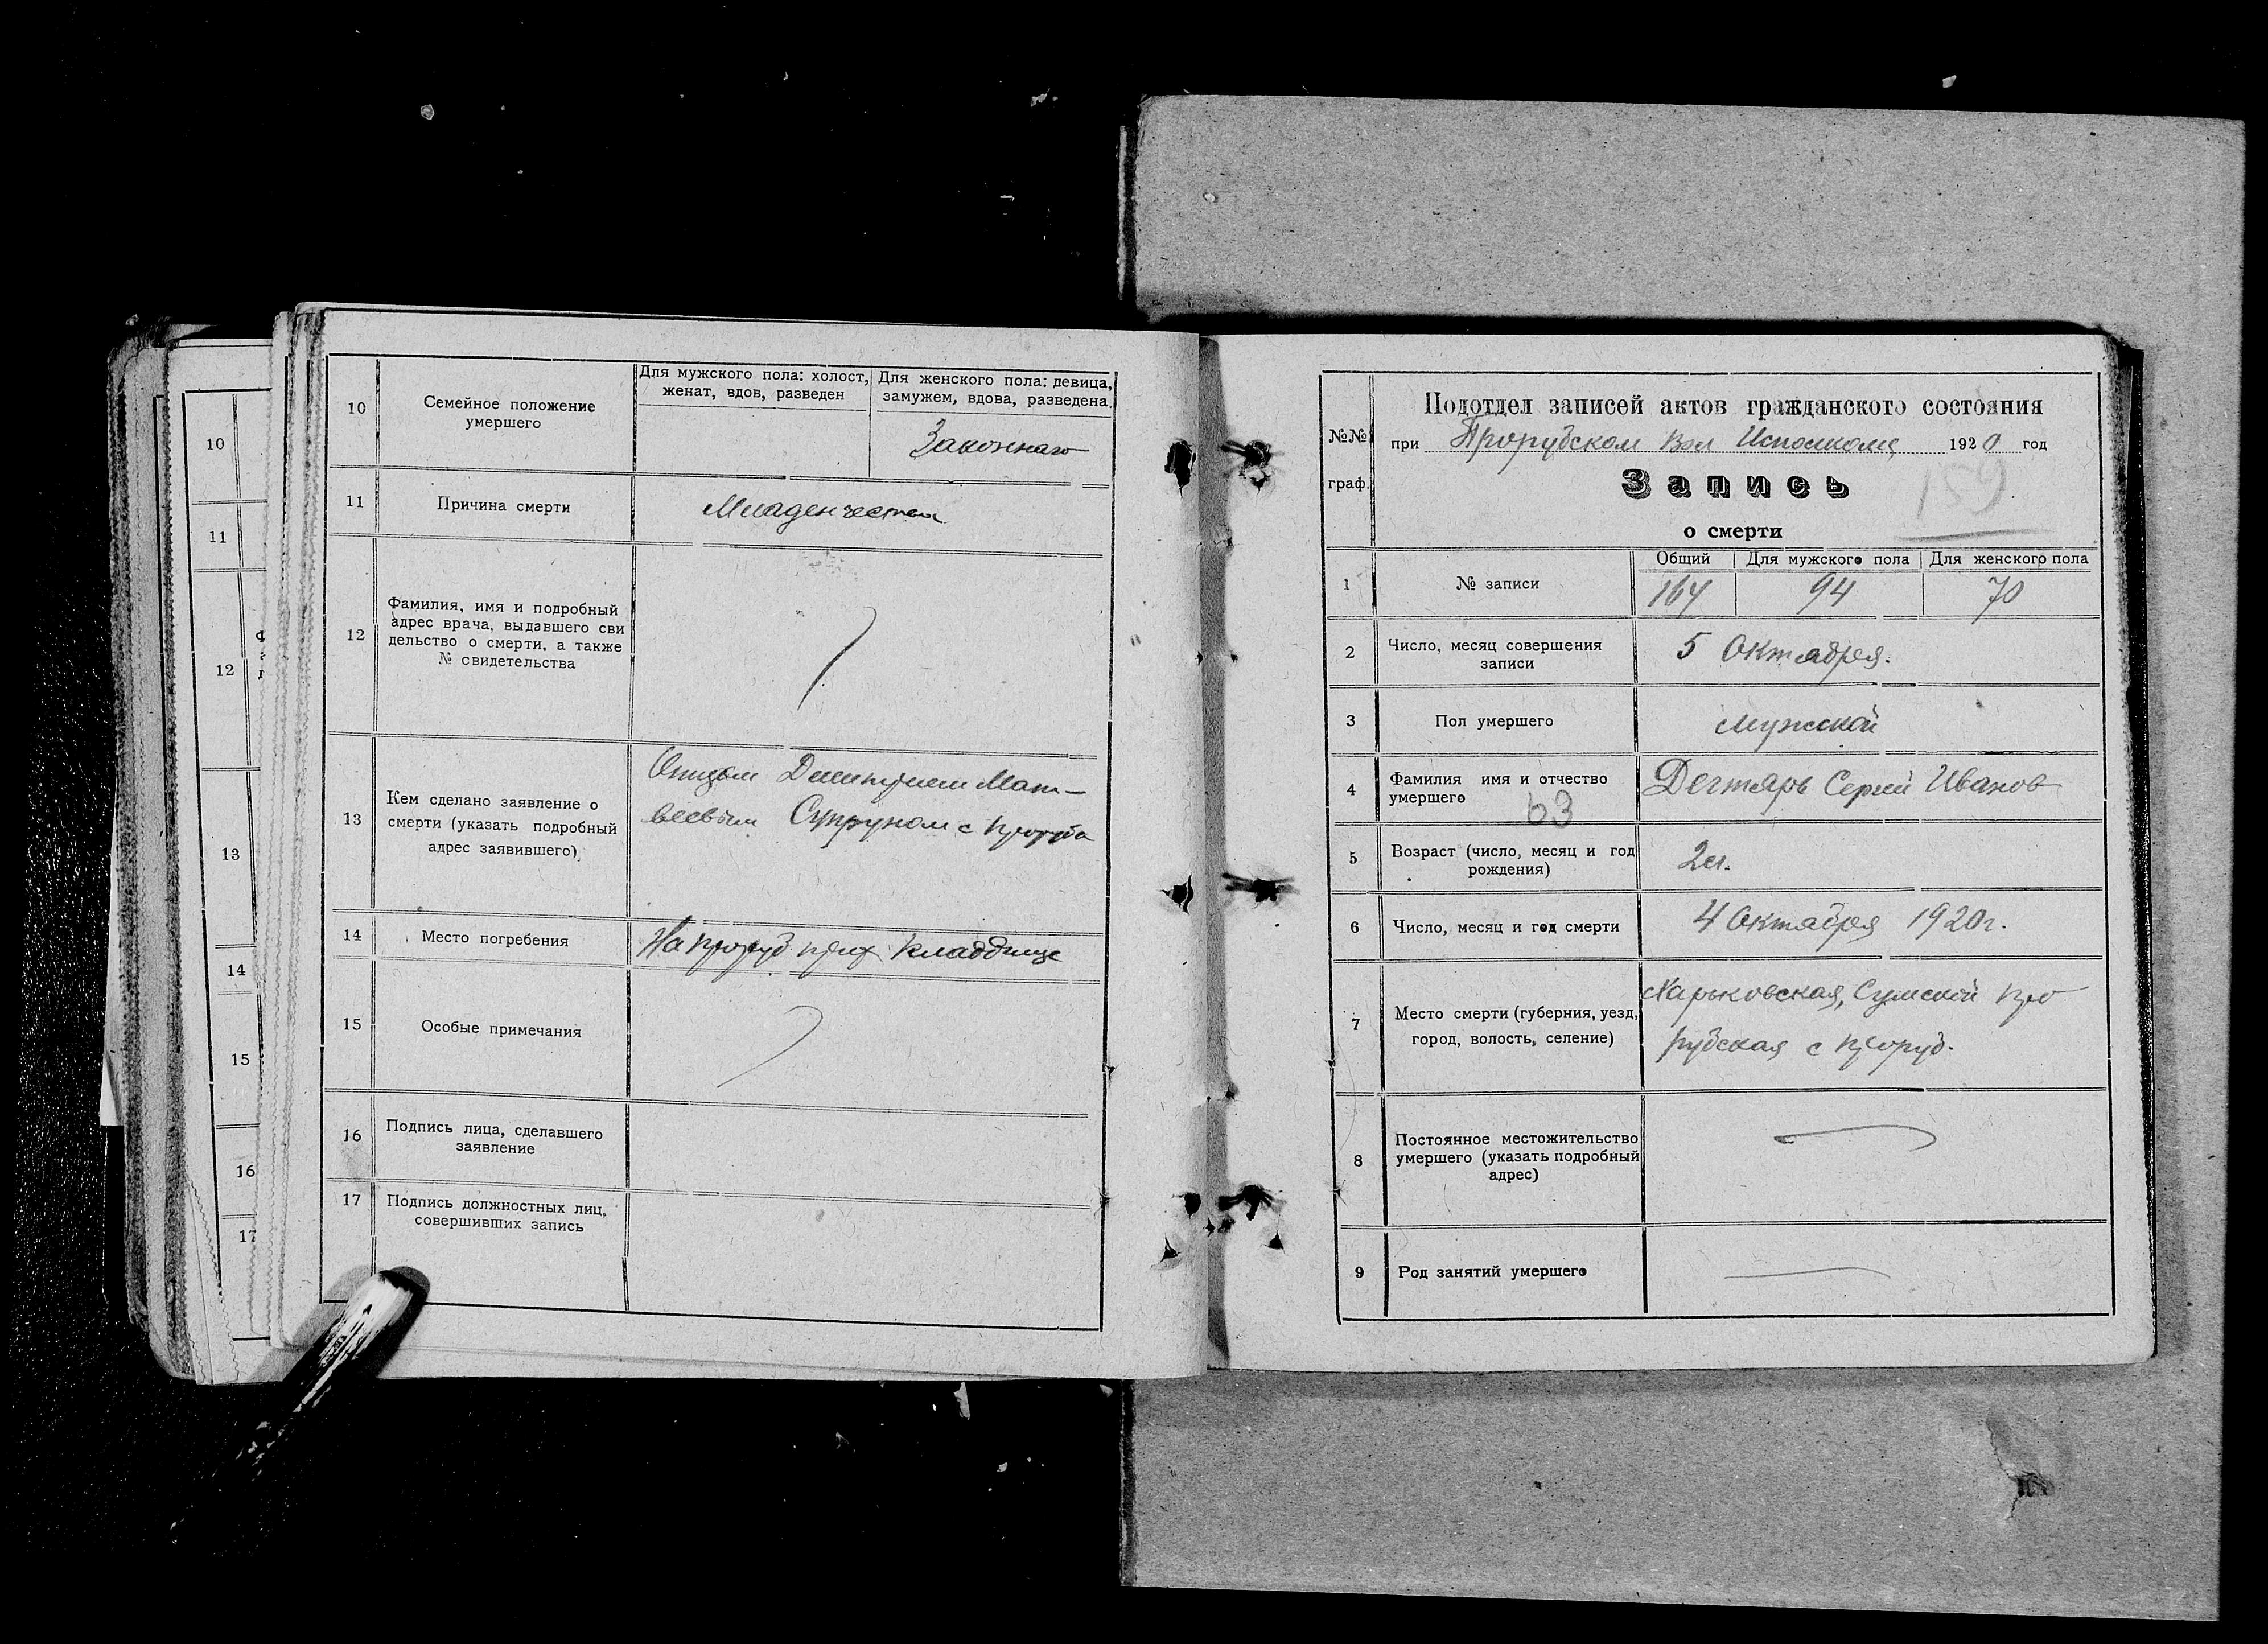 10
11
12
13
14
15
16
17
10
Семейное положение
умершего
Для мужского пола: холост,
женат, вдов, разведен
Для женского пола: девица,
замужем, вдова, разведена.
Законнаго
11
Причина смерти
Младенчества
12
Фамилия, имя и подробный
адрес врача, выдавшего сви
дельство о смерти, а также
№ свидетельства
13
Кем сделано заявление о
смерти (указать подробный
адрес заявившего)
Отцом Димитрием Мат-
веевым Супруном с Проруба
14
Место погребения
На Проруб прих кладбище
15
Особые примечания
16
Подпись лица, сделавшего
заявление
17
Подпись должностных лиц,
совершивших запись
№№
граф.
Подотдел записей актов гражданского состояния
при Прорубском Вол Исполкоме 1920 год
Запись
159
о смерти
1
№ записи
Общий
Для мужского пола
Для женского пола
164
94
70
2
Число, месяц совершения
записи
5 Октября.
3
Пол умершего
мужской
4
Фамилия имя и отчество
умершего
63
Дегтярь Сергий Иванов
5
Возраст (число, месяц и год
рождения)
6
Число, месяц и год смерти
4 Октября 1920г.
7
Место смерти (губерния, уезд,
город, волость, селение)
Харьковская, Сумской Про
рубская с Проруб.
8
Постоянное местожительство
умершего (указать подробный
адрес)
9
Род занятий умершего